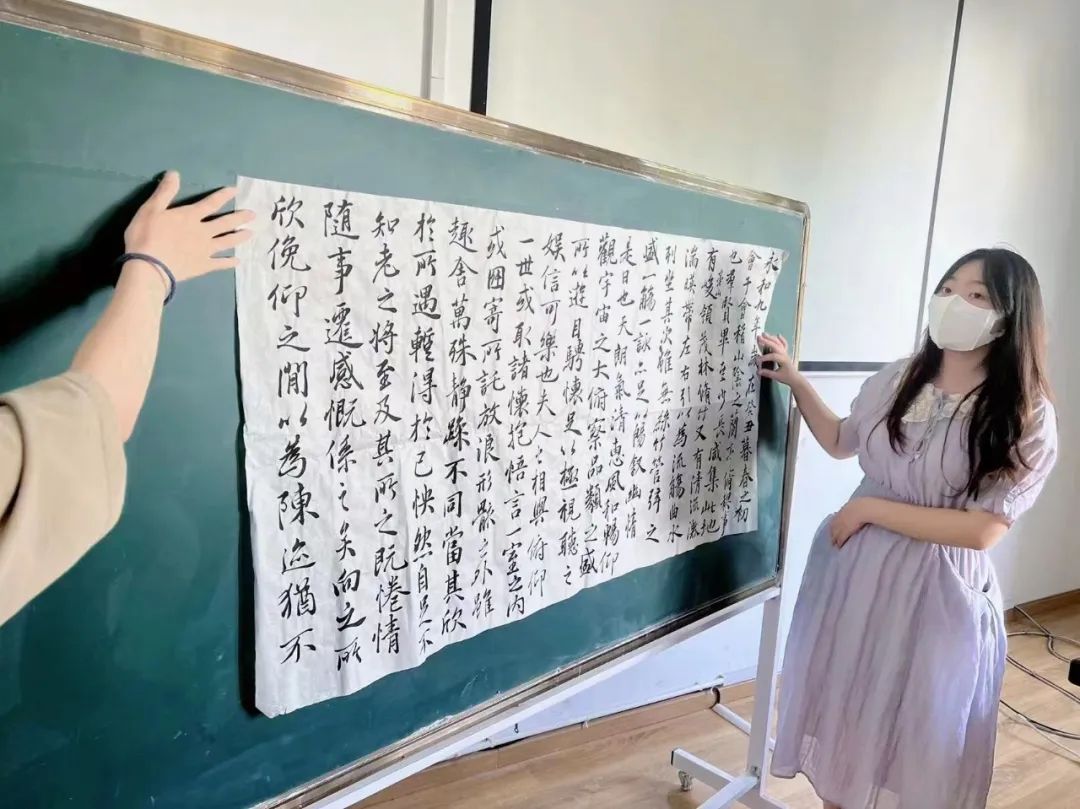 永和九年歲在癸丑暮春之初
會于會稽山陰之蘭亭脩禊事
也羣賢畢至少長咸集此地
有崇山峻領茂林脩竹又有清流激
湍暎帶左右引以為流觴曲水
列坐其次雖無絲竹管弦之
盛一觴一詠亦足以暢敘幽情
是日也天朗氣清惠風和暢仰
觀宇宙之大俯察品類之盛
所以遊目騁懷足以極視聽之
娛信可樂也夫人之相與俯仰
一世或取諸懷抱悟言一室之內
或因寄所託放浪形骸之外雖
趣舍萬殊靜躁不同當其欣
於所遇暫得於己怏然自足不
知老之將至及其所之既惓情
隨事遷感慨係之矣向之所
欣俛仰之閒以為陳迹猶不